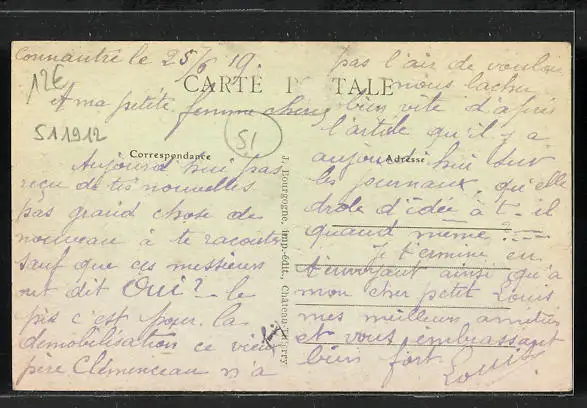 Connantré le 25/6 19.
CARTE POSTALE
12€
A ma petite femme chérie
S11912
51
Correspondance
Aujourd'hui pas
reçu de tes nouvelles
pas grand chose de
nouveau à te raconter
sauf que ces messieurs
ont dit Oui? le
pis c'est pour la
démobilisation ce vieux
père Clémenceau n'a
J. Bourgogne, imp.-édit., Château-Thierry
pas l'air de vouloir
nous lacher
bien vite d'après
l'article qu'il y a
Adresse
aujourd'hui sur
les journaux, qu'elle
drole d'idée à t-il
quand même
Je termine en
t'envoyant ainsi qu'à
mon cher petit Louis
mes meilleurs amitiés
et vous embrassant
bien fort
Louis